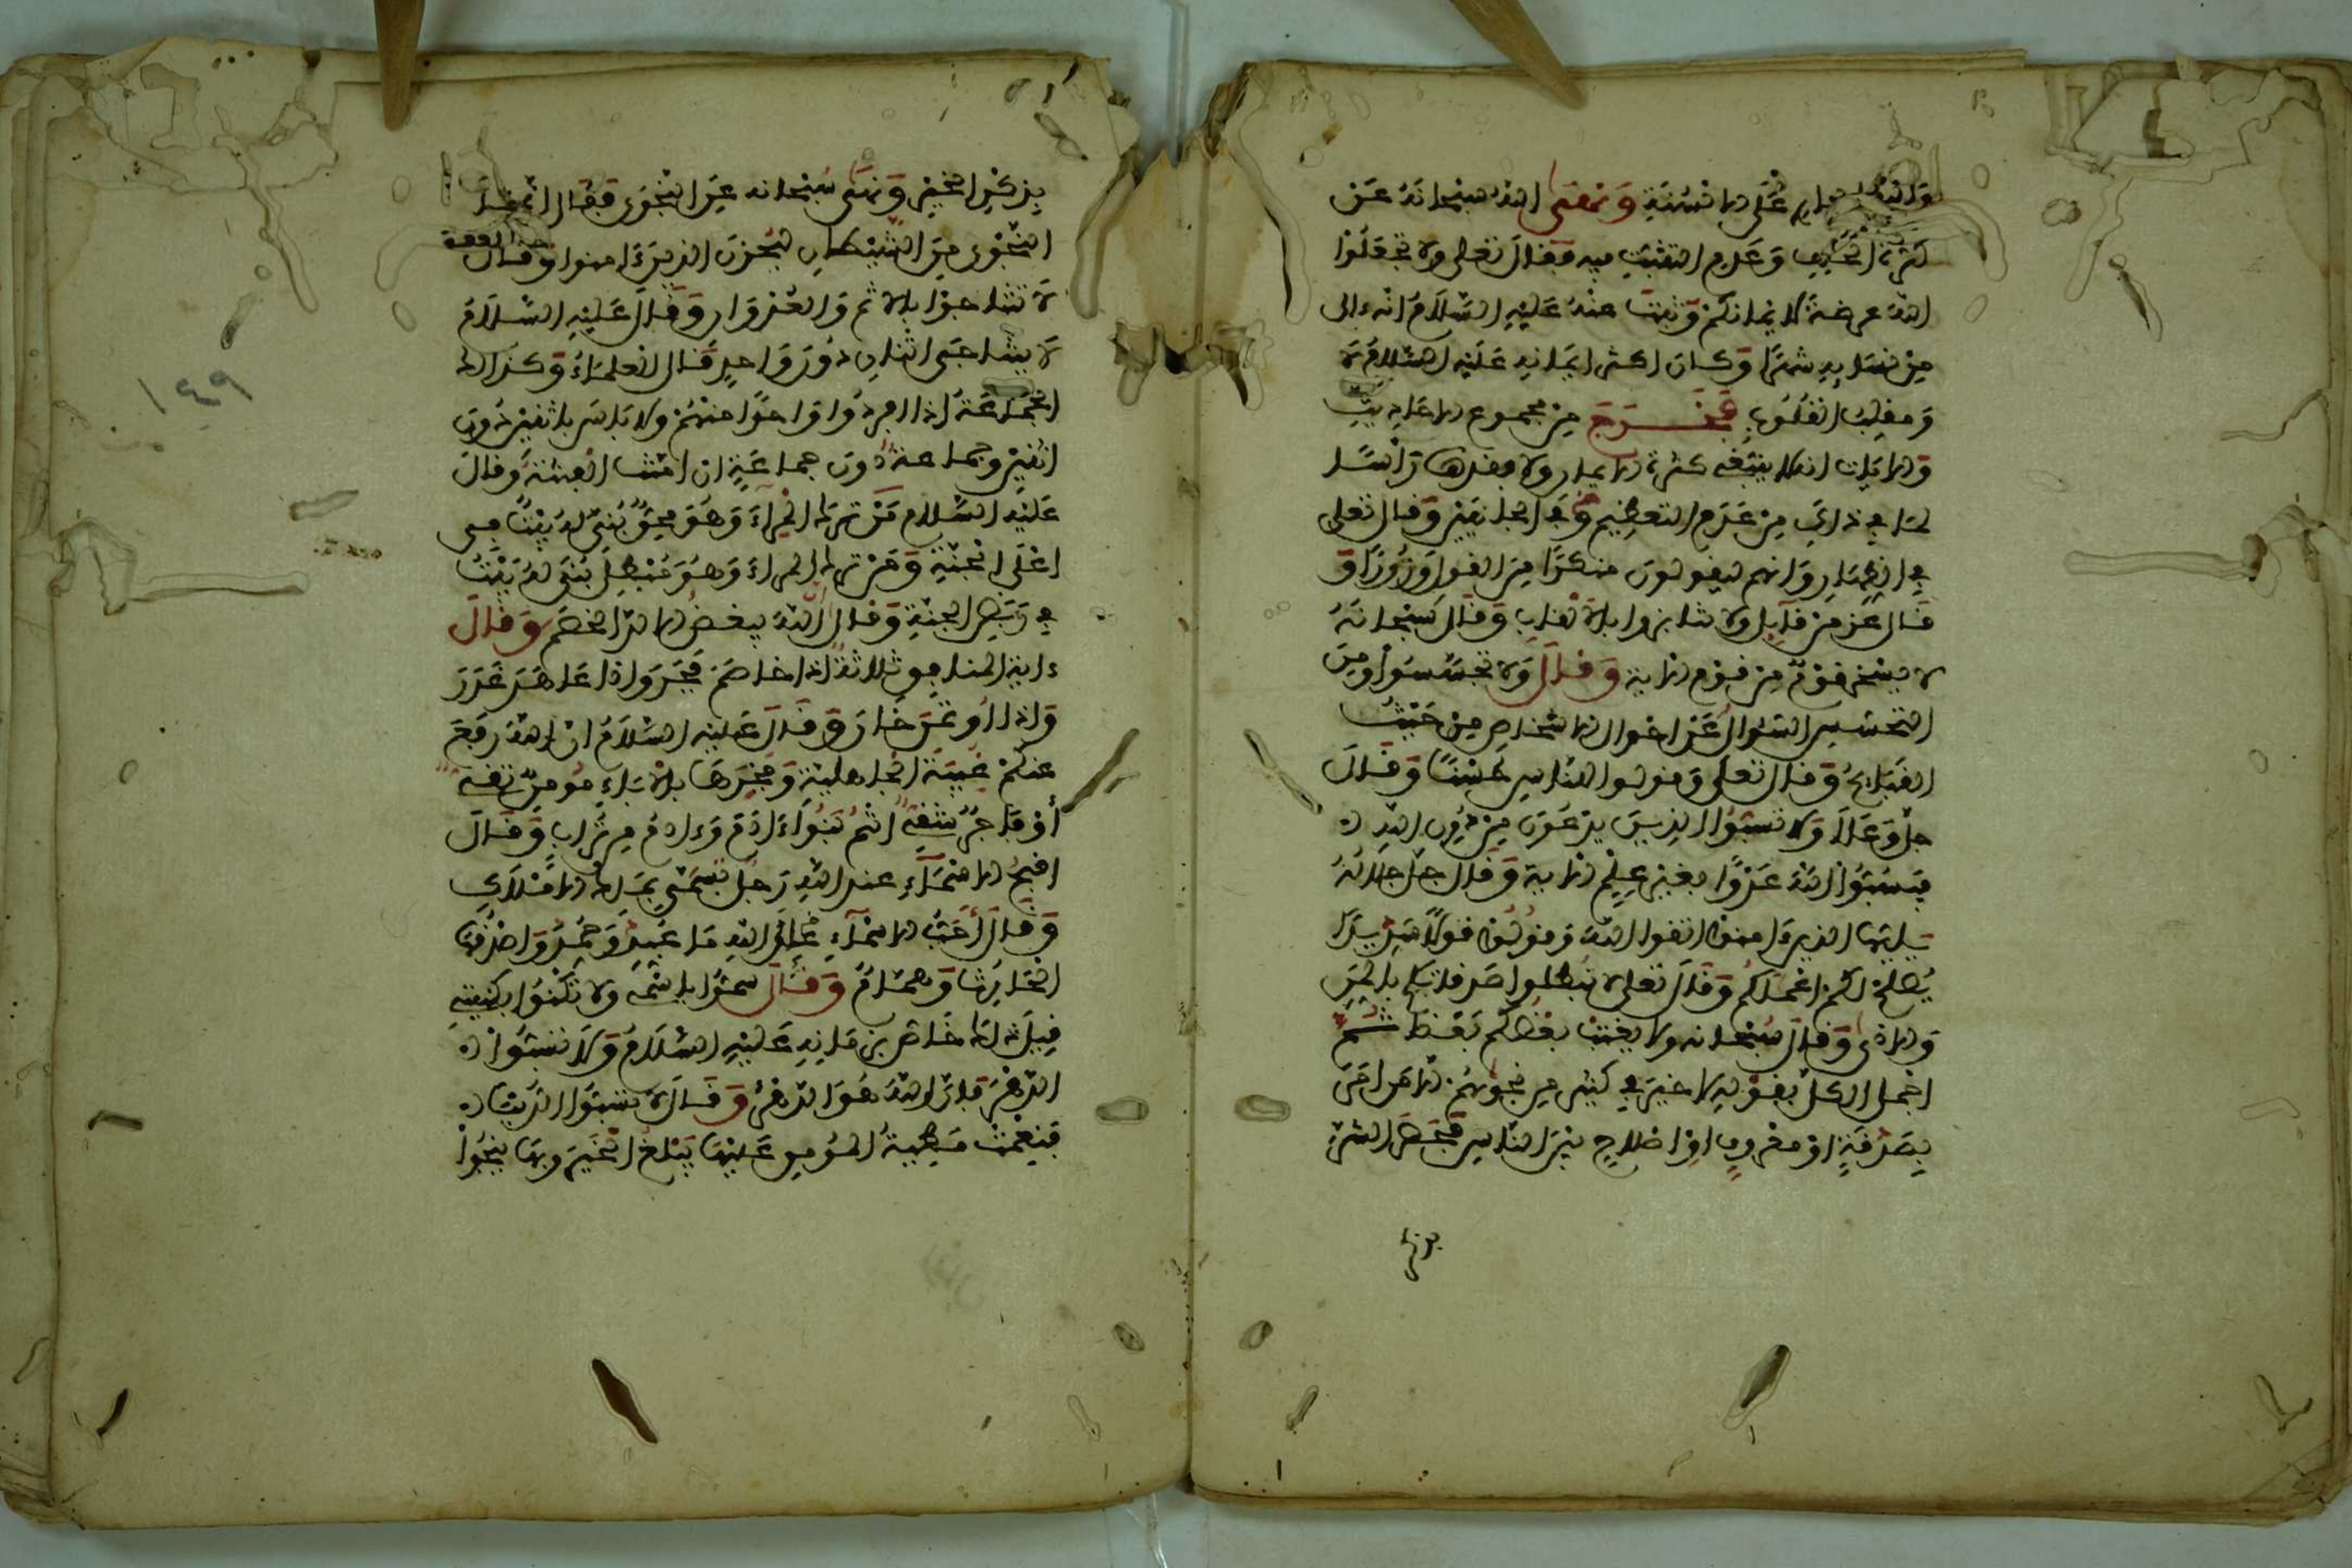 على الالسنة ونهى الله سبحانه عن
كثرة الحلف وعدم التثبت فيه فقال تعلى ولا تجعلوا
الله عرضة لايمانكم وثبت عنه عليه السلام انه ءالى
من نسايه شهرا وكان اكثر ايمانه عليه السلام لا
ومقلب القلوب فخرج من مجموع الاحاديث
والايات انه لا ينبغي كثرة الايمان ولا فقدها رأسا
لما في ذالك من عدم التعظيم في الجانبين وقال تعلى
في الظهار وانهم ليقولون منكرا من القول وزورا و
قال عز من قايل ولا تنابزوا بالالقاب وقال سبحانه
لا يسخر قوم من قوم الاية وقال ولا تجسسوا ومن
التجسس السؤال عن احوال الاشخاص من حيث
القبايح وقال تعلى وقولوا للناس حسنا وقال
جل وعلا ولا تسبوا الذين يدعون من دون الله
فيسبوا الله عدوا بغير علم الاية وقال جل جلاله
يايها الذين ءامنوا اتقوا الله وقولوا قولا سديدا
يصلح لكم اعملكم وقال تعلى لا تبطلوا صدقاتكم بالمن
والاذى وقال سبحانه ولا يغتب بعضكم بعضا ثم
اجمل الكل بقوله لا خير في كثير من نجويهم الا من امر
بصدقة او معروف او اصلاح بين الناس فخص الشرع
بذكر الخير ونهى سبحانه عن النجوى فقال انما
النجوى من الشيطان ليحزن الذين ءامنوا وقال
لا تتناجوا بالاثم والعدوان وقال عليه السلام
لا يتناجى اثنان دون واحد قال العلماء وكذالك
الجماعة اذا افردوا واحدا منهم ولا باس باثنين دون
اثنين وجماعة دون جماعة ان امنت الفتنة وقال
عليه السلام من ترك المراء وهو محق بني له بيت في
اعلى الجنة ومن ترك المراء وهو مبطل بني له بيت
في ربض الجنة وقال ان الله يبغض الالد الخصم وقال
ءاية المنافق ثلاثة اذا خاصم فجر واذا عاهد غدر
واذا اوتمن خان وقال عليه السلام ان الله رفع
عنكم عبية الجاهلية وفخرها بالاباء مومن تقي
او فاجر شقي انتم بنو ءادم وءادم من تراب وقال
اقبح الاسماء عند الله رجل تسمى بملك الاملاك
وقال احب الاسماء الى الله ما عبد وحمد واصدقها
الحارث وهمام وقال سموا باسمي ولا تكنوا بكنيتي
قيل ذلك خاص بزمانه عليه السلام ولا تسبوا
الدهر فان الله هو الدهر وقال لا تسبوا الدنيا
فنعمت مطية المومن عليها يبلغ الخير وبها ينجوا
١٤٩
بذكر